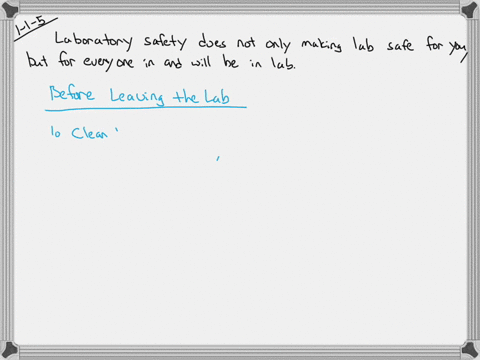 1-1-5
Laboratory safety does not only making lab safe for you
but for everyone in and will be in lab.
Before Leaving the Lab
1o Clean